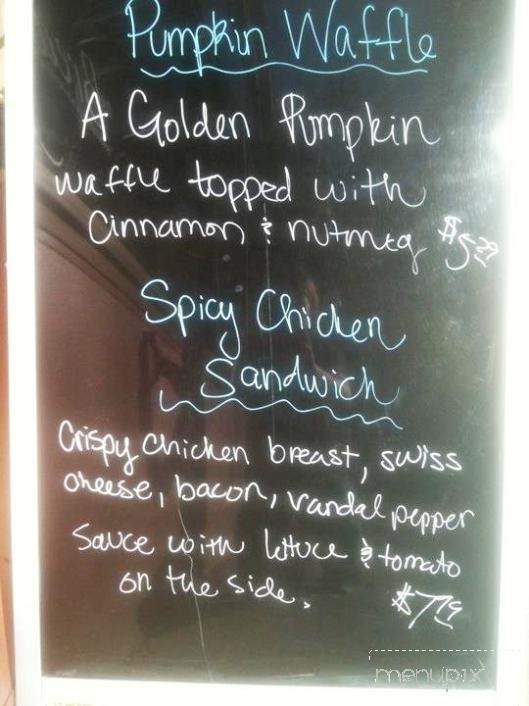 Pumpkin Waffle
A Golden Pumpkin
waffle topped with
Cinnamon & nutmeg $5.29
Spicy Chicken
Sandwich
Crispy chicken breast, swiss
cheese, bacon, vandal pepper
sauce with lettuce & tomato
on the side. $7.19
menupix